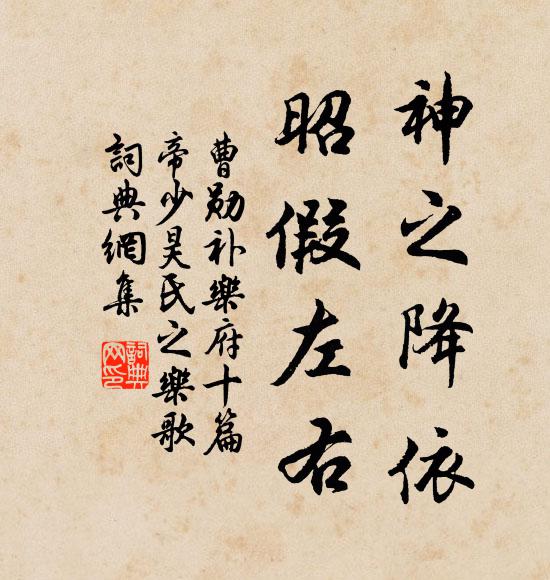 神之降依
昭假左右
曹勋补樂府十篇
帝少昊氏之樂歌
詞典網集
詞典
网印